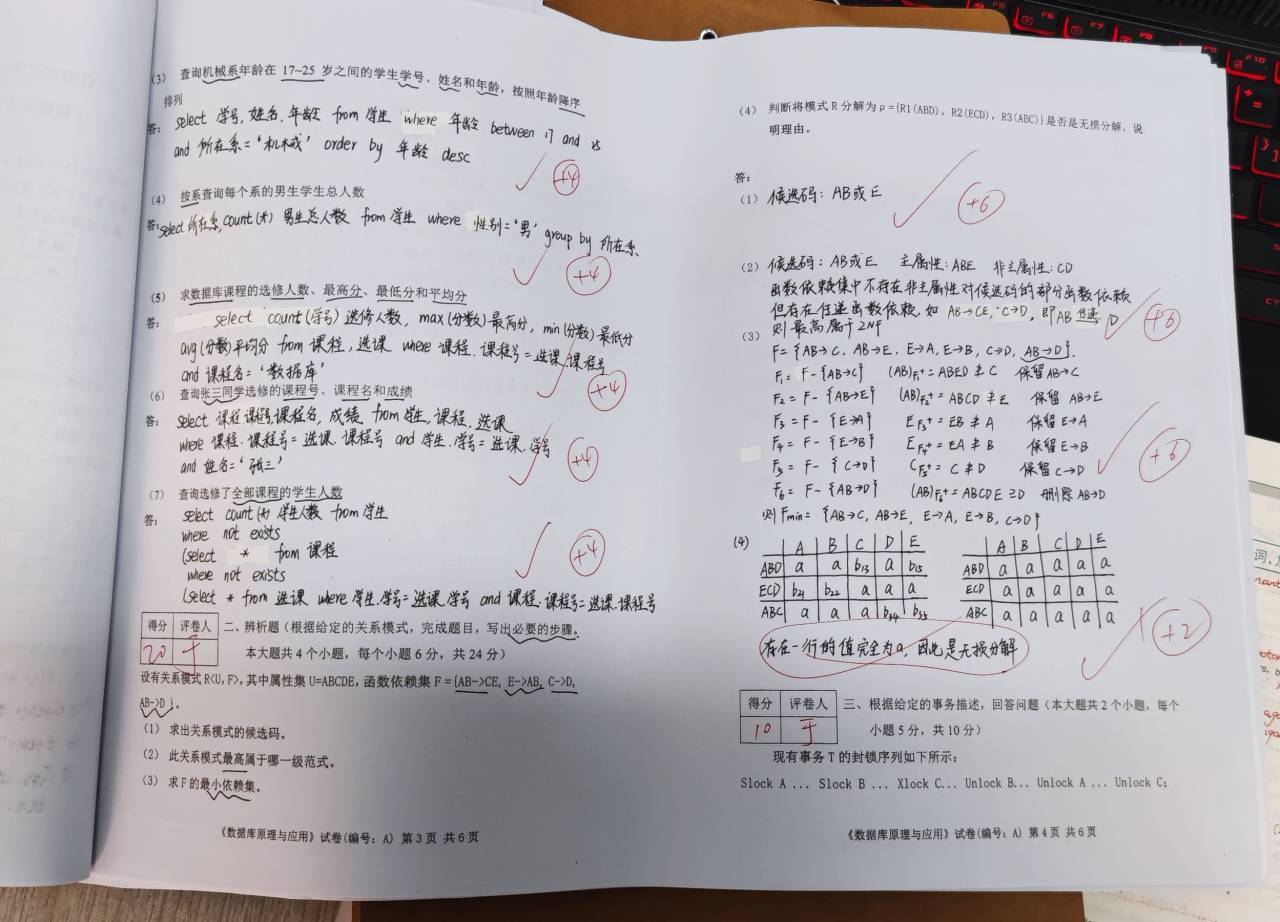 (3) 查询机械系年龄在 17~25 岁之间的学生学号、姓名和年龄，按照年龄降序
排列
答：select 学号,姓名,年龄 from 学生 where 年龄 between 17 and 25
and 所在系='机械' order by 年龄 desc
+4
(4) 按系查询每个系的男生学生总人数
答：select 所在系,count(*) 男生总人数 from 学生 where 性别='男' group by 所在系
+4
(5) 求数据库课程的选修人数、最高分、最低分和平均分
答：select count(学号) 选修人数, max(分数)最高分, min(分数)最低分
avg(分数)平均分 from 课程,选课 where 课程.课程号=选课.课程号
and 课程名='数据库'
+4
(6) 查询张三同学选修的课程号、课程名和成绩
答：select 课程.课程号,课程名,成绩 from 学生,课程,选课
where 课程.课程号=选课.课程号 and 学生.学号=选课.学号
and 姓名='张三'
+4
(7) 查询选修了全部课程的学生人数
答：select count(*) 学生人数 from 学生
where not exists
(select * from 课程
where not exists
(select * from 选课 where 学生.学号=选课.学号 and 课程.课程号=选课.课程号
+4
得分 评卷人
20
二、辨析题（根据给定的关系模式，完成题目，写出必要的步骤。
本大题共 4 个小题，每个小题 6 分，共 24 分）
设有关系模式 R<U, F>, 其中属性集 U=ABCDE, 函数依赖集 F={AB->CE, E->AB, C->D,
AB->D }。
(1) 求出关系模式的候选码。
(2) 此关系模式最高属于哪一级范式。
(3) 求 F 的最小依赖集。
《数据库原理与应用》试卷(编号：A) 第 3 页 共 6 页
(4) 判断将模式 R 分解为 ρ={R1(ABD), R2(ECD), R3(ABC)}是否是无损分解，说
明理由。
答：
(1) 候选码：AB或E
+6
(2) 候选码：AB或E 主属性：ABE 非主属性：CD
函数依赖集中不存在非主属性对候选码的部分函数依赖
但存在传递函数依赖,如 AB→CE, C→D, 即AB 传递→ D
则最高属于2NF
+6
(3)
F={AB→C, AB→E, E→A, E→B, C→D, AB→D}.
F1= F-{AB→C} (AB)F1+=ABED ⊉ C 保留AB→C
F2= F-{AB→E} (AB)F2+=ABCD ⊉ E 保留 AB→E
F3= F-{E→A} EF3+=EB ⊉ A 保留E→A
F4= F-{E→B} EF4+=EA ⊉ B 保留E→B
F5= F-{C→D} CF5+=C ⊉ D 保留C→D
F6= F-{AB→D} (AB)F6+=ABCDE ⊇D 删除AB→D
则Fmin={AB→C, AB→E, E→A, E→B, C→D}
+6
(4)
A B C D E
ABD a a b13 a b15
ECD b21 b22 a a a
ABC a a a b34 b35
A B C D E
ABD a a a a a
ECD a a a a a
ABC a a a a a
存在一行的值完全为a, 因此是无损分解
+2
得分 评卷人
10
三、根据给定的事务描述，回答问题（本大题共 2 个小题，每个
小题 5 分，共 10 分）
现有事务 T 的封锁序列如下所示：
Slock A ... Slock B ... Xlock C... Unlock B... Unlock A ... Unlock C;
《数据库原理与应用》试卷(编号：A) 第 4 页 共 6 页